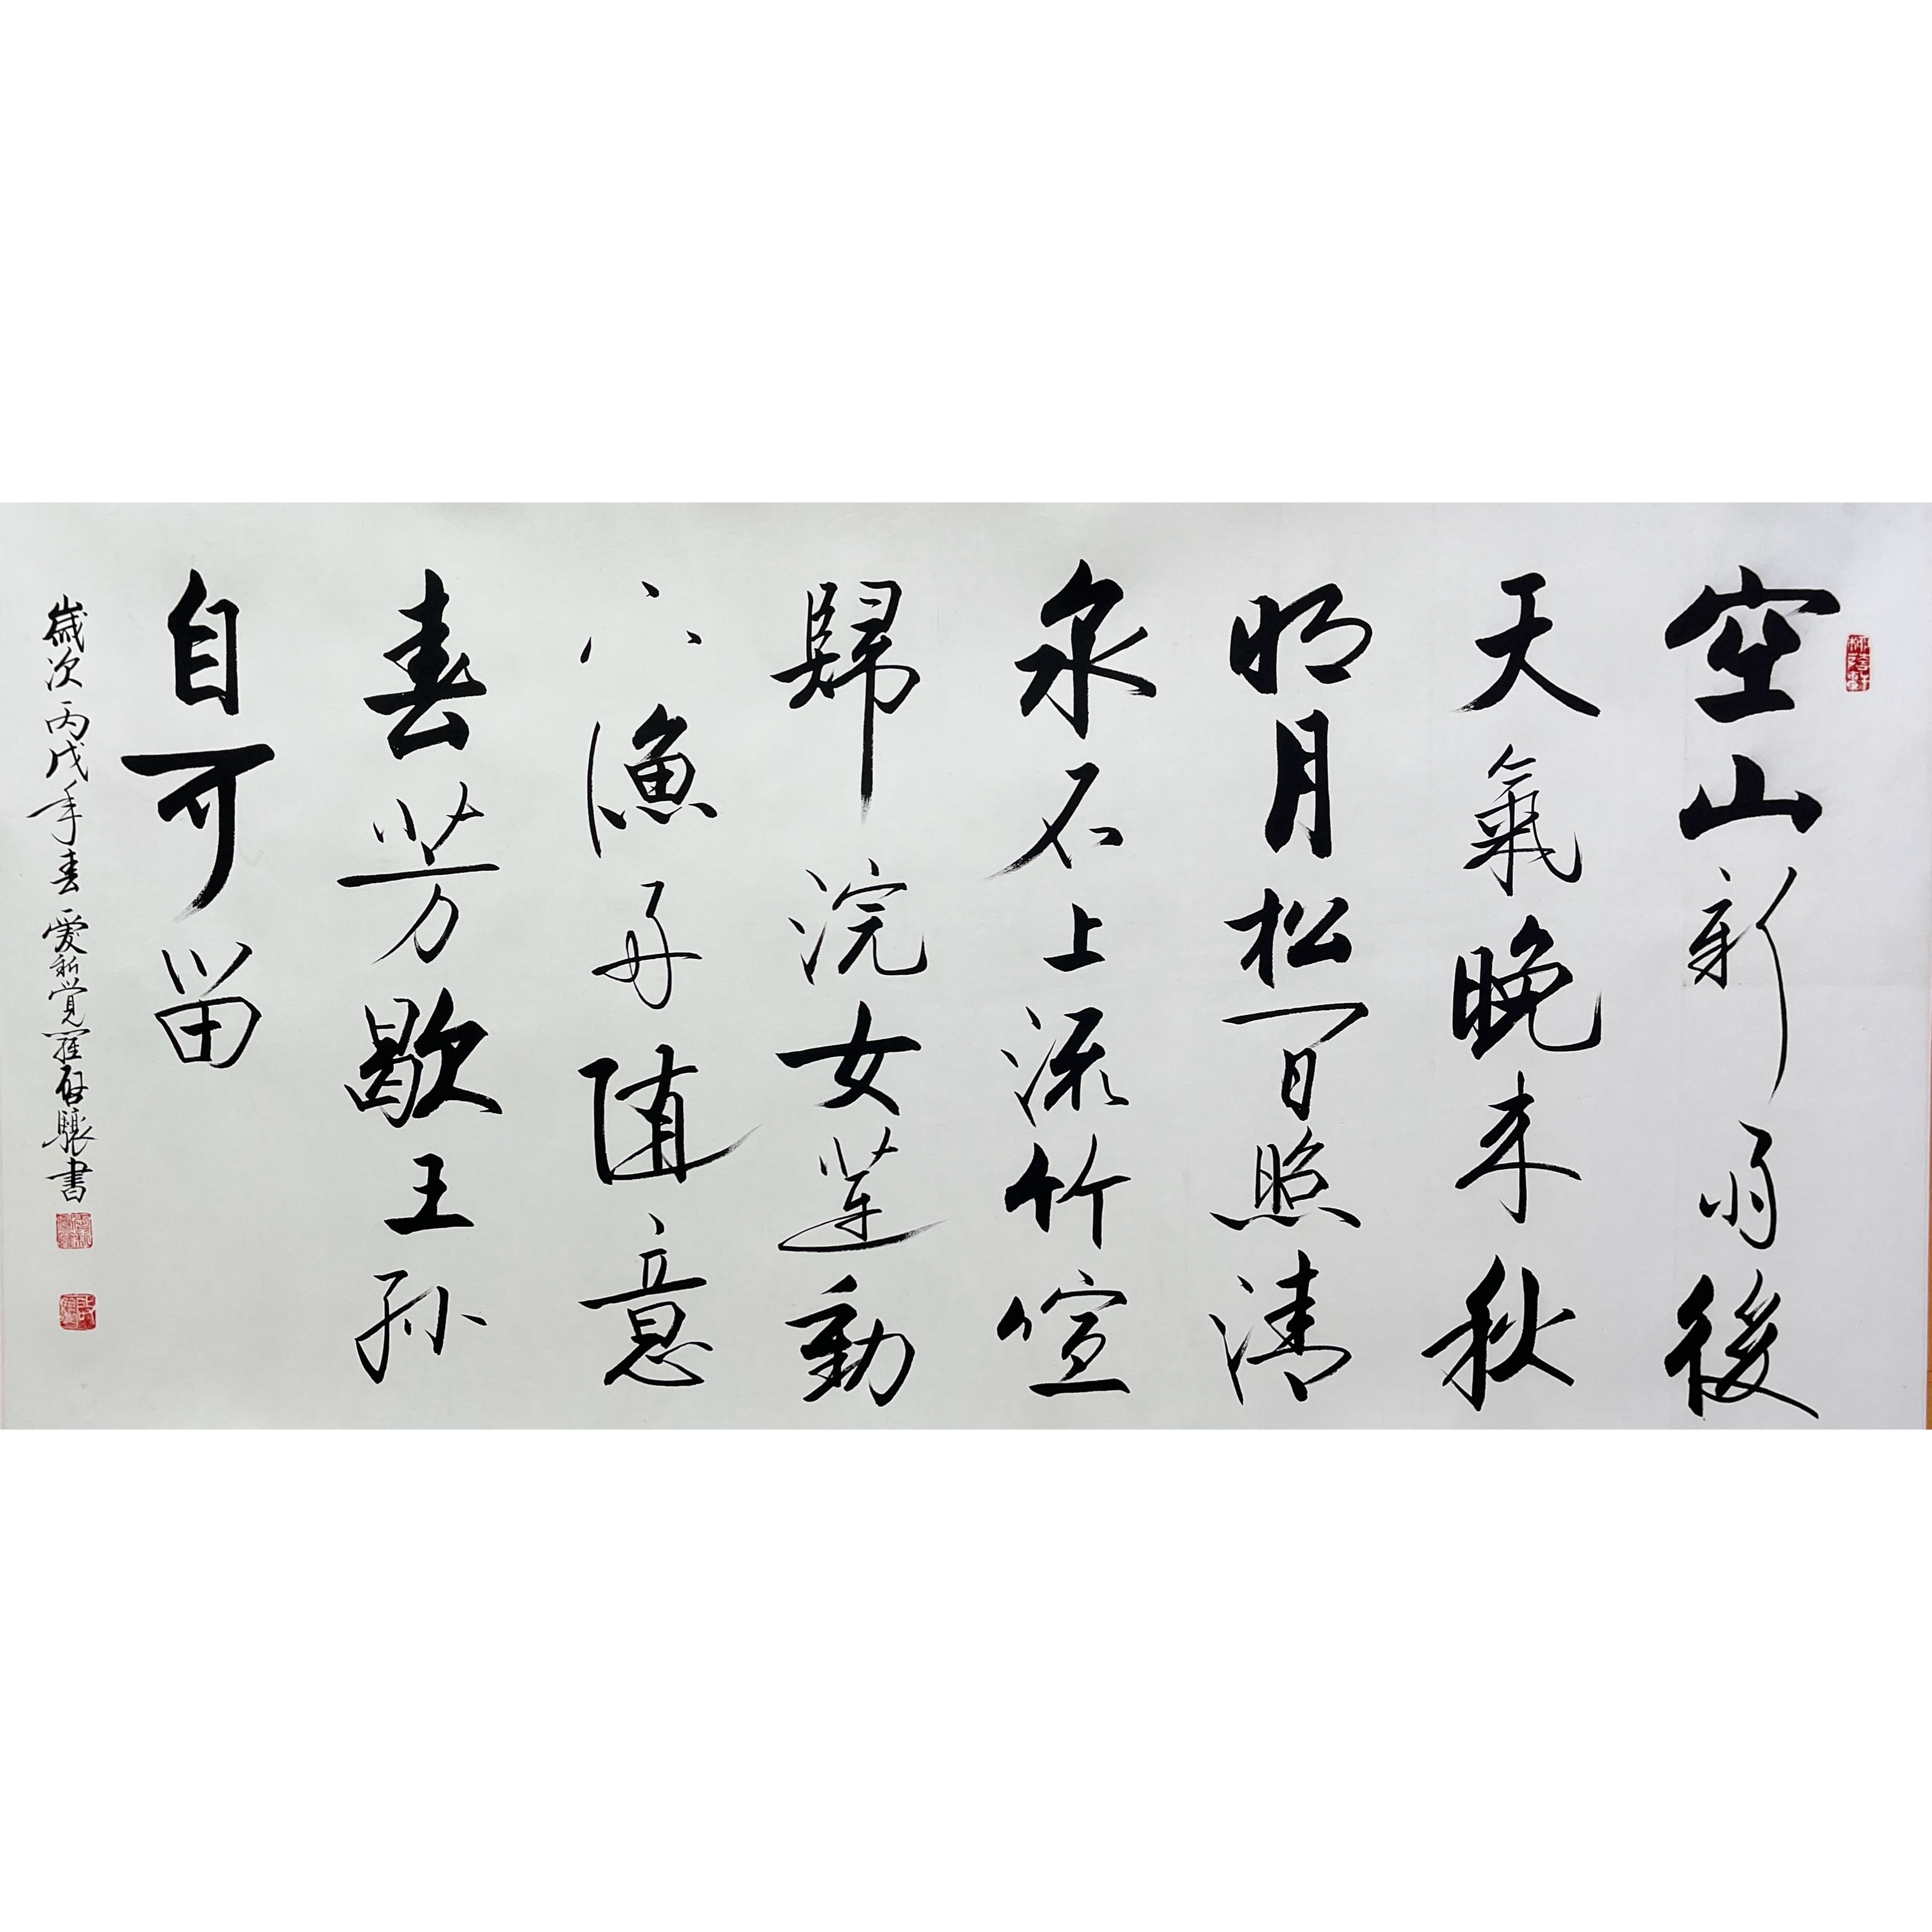 空山新雨後
天氣晚来秋
明月松間照清
泉石上流竹喧
歸浣女蓮動
下漁舟随意
春芳歇王孫
自可留
歲次丙戌年春 愛新覺羅啟驤書